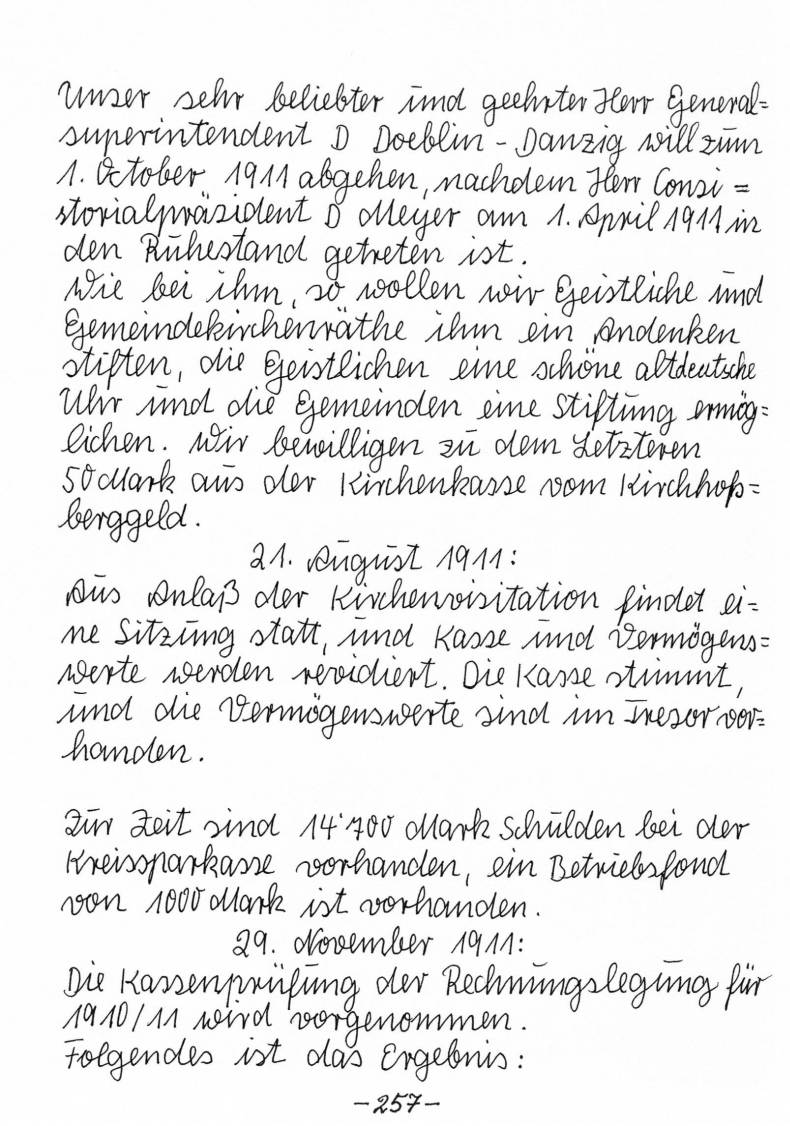 Unser sehr beliebter und geehrter Herr General=
superintendent D Doeblin - Danzig will zum
1. October 1911 abgehen, nachdem Herr Consi=
storialpräsident D Meyer am 1. April 1911 in
den Ruhestand getreten ist.
Wie bei ihm, so wollen wir Geistliche und
Gemeindekirchenräthe ihm ein Andenken
stiften, die Geistlichen eine schöne altdeutsche
Uhr und die Gemeinden eine Stiftung ermög=
lichen. Wir bewilligen zu dem Letzteren
50 Mark aus der Kirchenkasse vom Kirchhofs=
berggeld.
21. August 1911:
Aus Anlaß der Kirchenvisitation findet ei=
ne Sitzung statt, und Kasse und Vermögens=
werte werden revidiert. Die Kasse stimmt,
und die Vermögenswerte sind im Tresor vor=
handen.
Zur Zeit sind 14'700 Mark Schulden bei der
Kreissparkasse vorhanden, ein Betriebsfond
von 1000 Mark ist vorhanden.
29. November 1911:
Die Kassenprüfung der Rechnungslegung für
1910/11 wird vorgenommen.
Folgendes ist das Ergebnis:
-257-